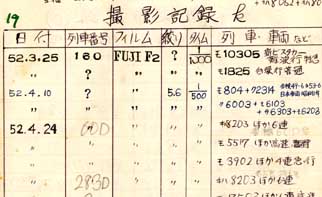 19 撮影記録 た
日付 列車番号 フィルム 絞り タイム 列車・車両 など
52.3.25 160 FUJI F2 ? 1/1000 モ10305
〃 ? 〃 ? 〃 モ1825 白塚行普通
52.4.10 ? 〃 5.6 1/500 モ804+ク2314
〃 〃 〃 〃 〃 〃6003+モ6103
+サ6303+モ6203
52.4.24 〃 〃 〃 8203 ほか6連
〃 〃 〃 〃 モ5517 ほか
〃 〃 〃 〃 モ3902 ほか4連急行
〃 2830 〃 〃 〃 8203 ほか6連